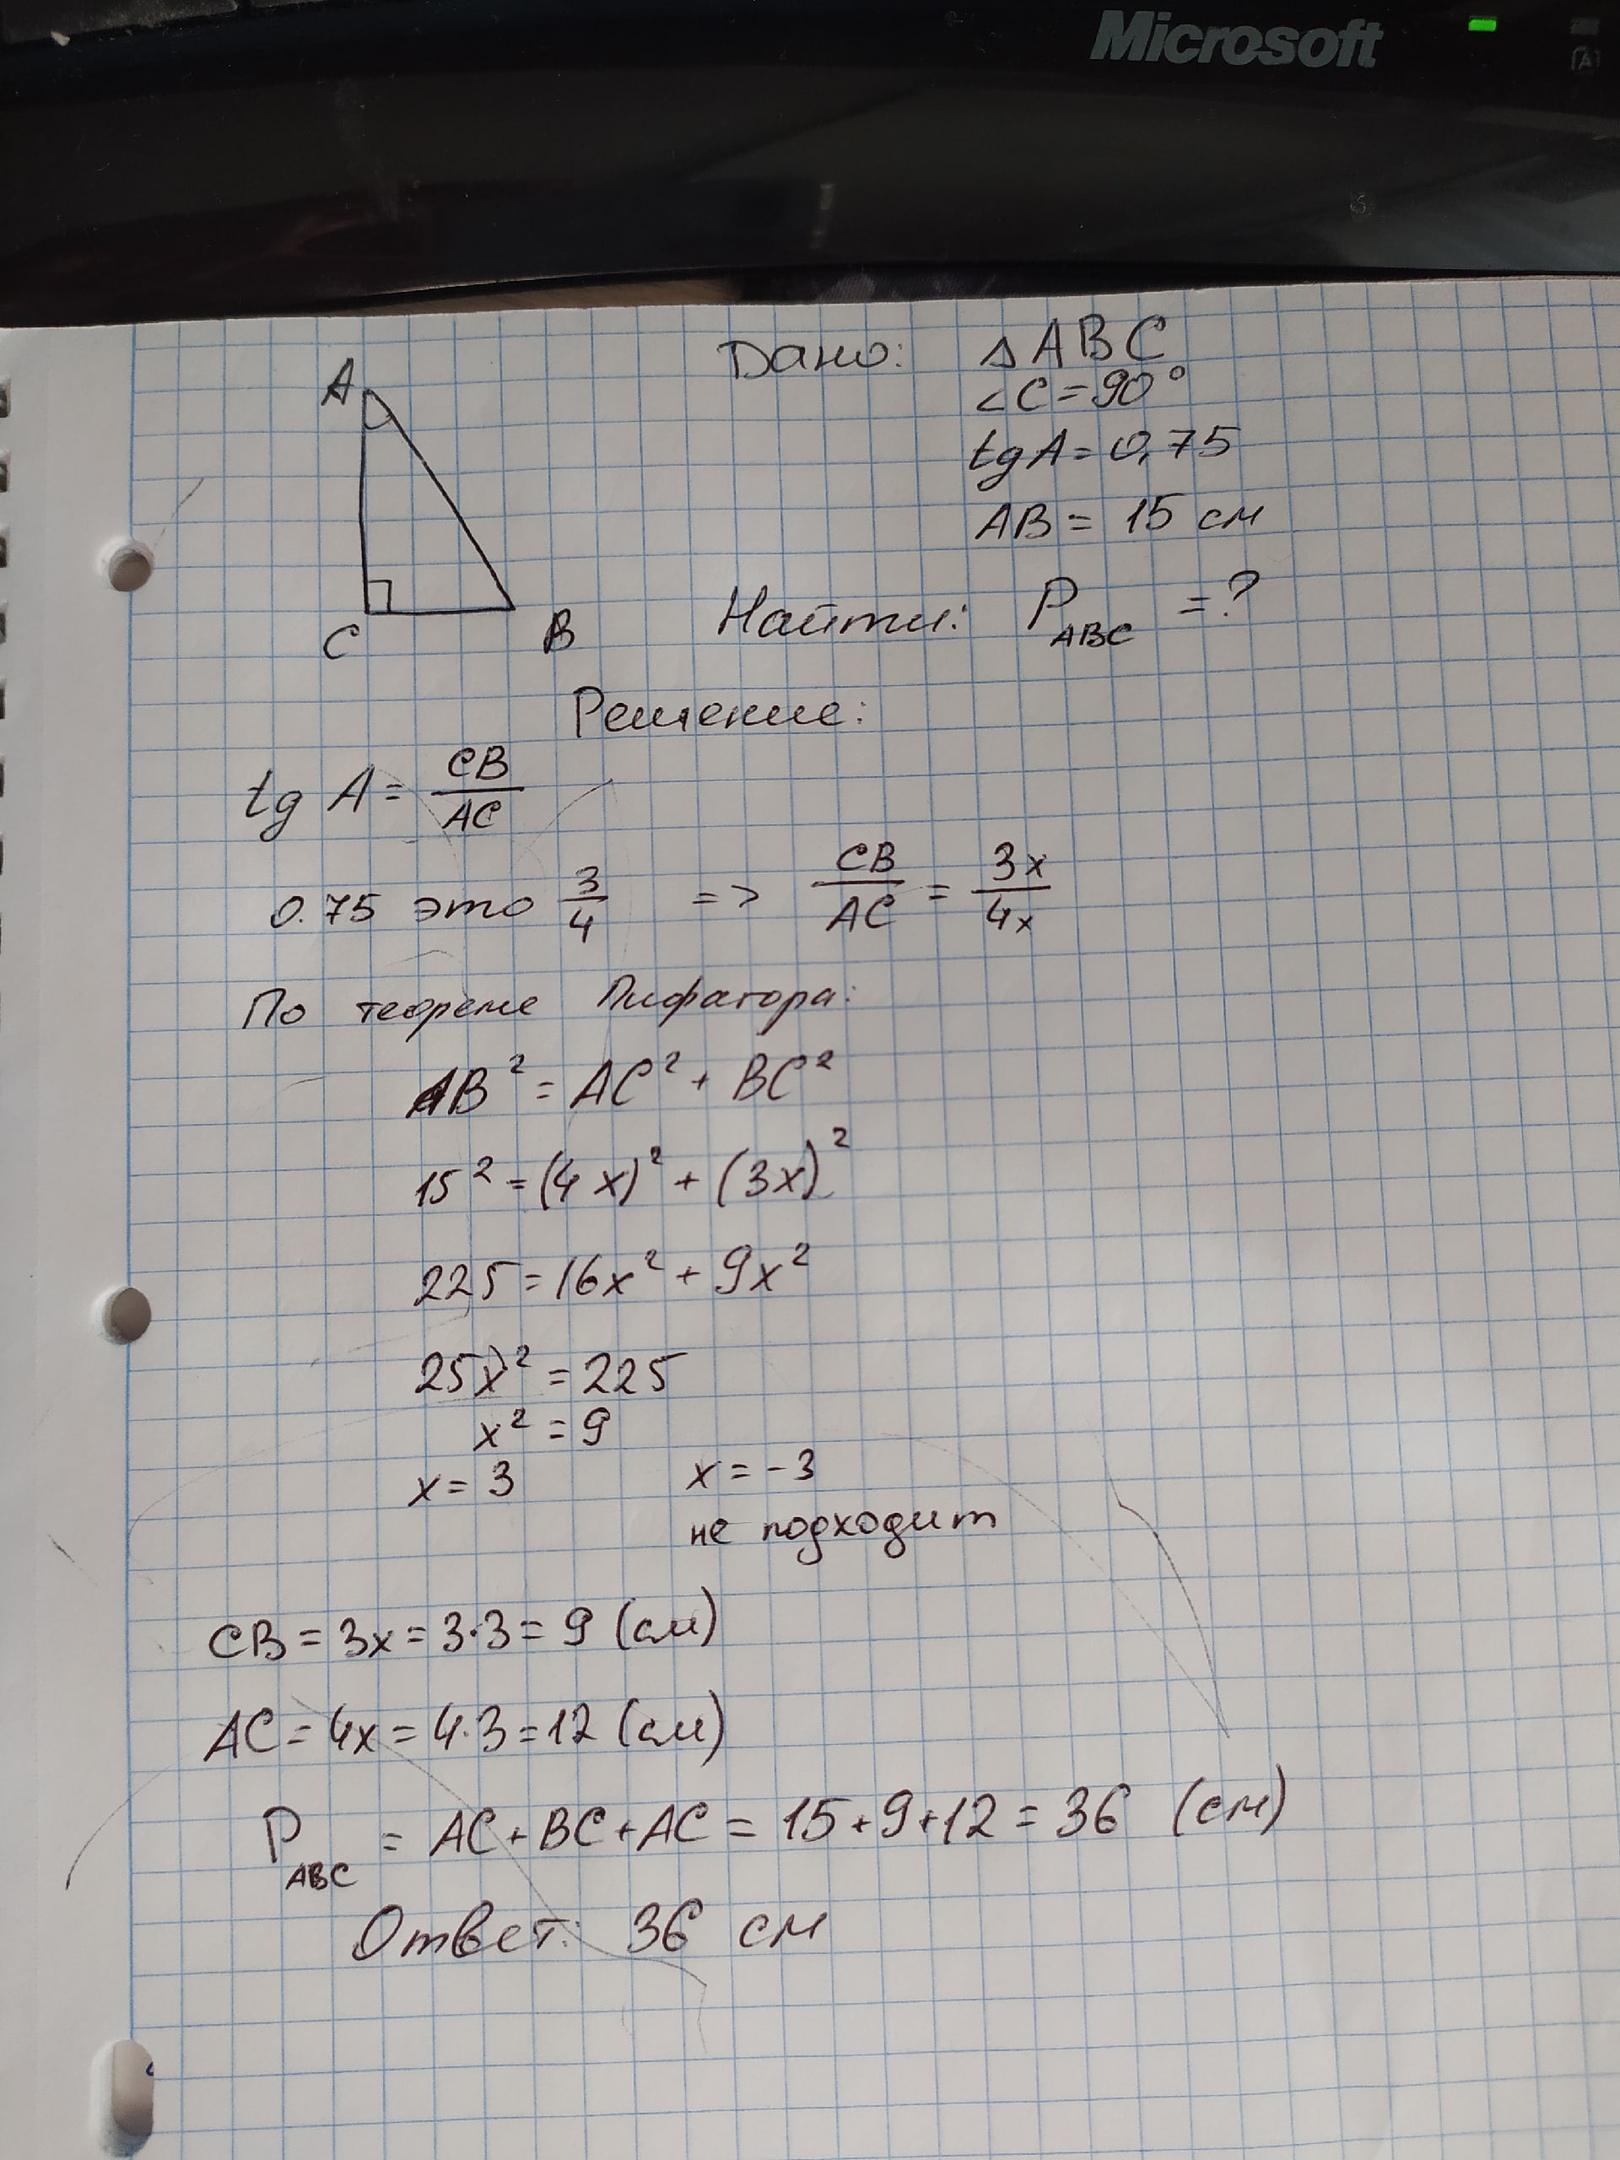 Microsoft
A
Дано: △ABC
∠C=90°
tgA=0,75
AB=15 см
A
C
B
Найти: P_ABC =?
Решение:
tg A = CB/AC
0.75 это 3/4 => CB/AC = 3x/4x
По теореме Пифагора:
AB² = AC² + BC²
15² = (4x)² + (3x)²
225 = 16x² + 9x²
25x² = 225
x² = 9
x = 3 x = -3
не подходит
CB = 3x = 3·3 = 9 (см)
AC = 4x = 4·3 = 12 (см)
P_ABC = AC + BC + AC = 15 + 9 + 12 = 36 (см)
Ответ: 36 см